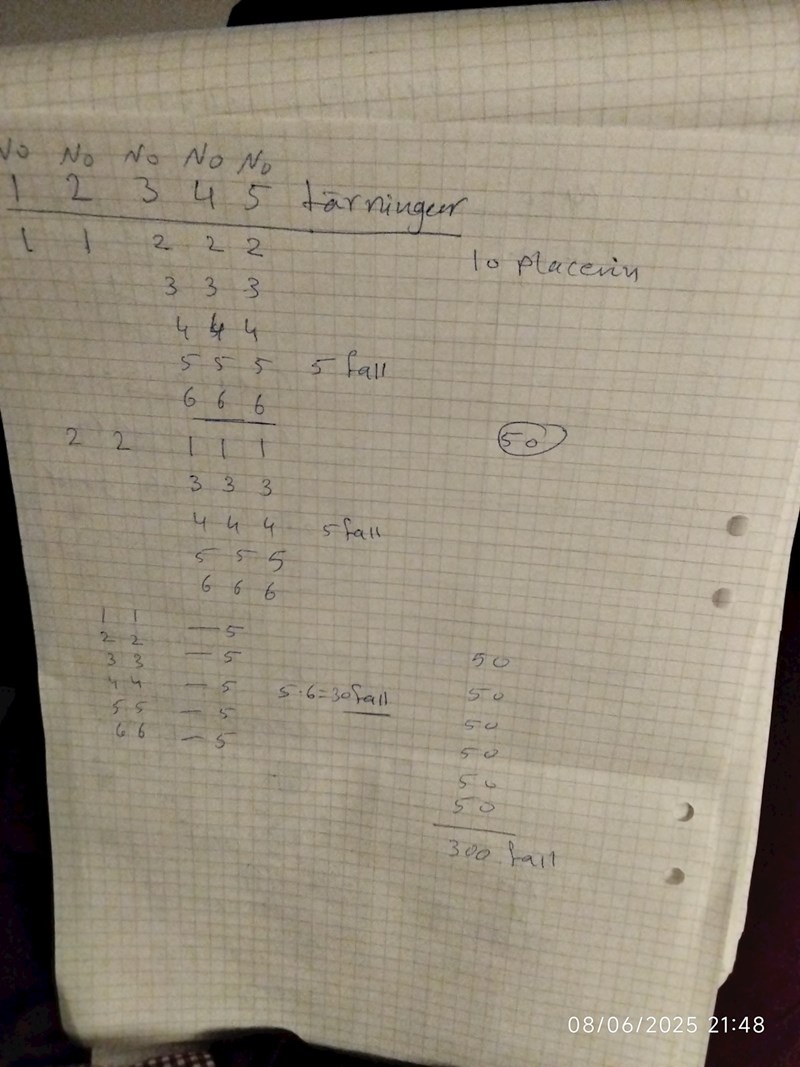 No No No No No
1 2 3 4 5 tärningeer
1 1 2 2 2
10 placerin
3 3 3
4 4 4
5 5 5 5 fall
6 6 6
2 2 1 1 1
50
3 3 3
4 4 4 5 fall
5 5 5
6 6 6
1 1 — 5
2 2 — 5
3 3 — 5
4 4 — 5
5 5 — 5
6 6
5·6=30 fall
50
50
50
50
50
50
300 fall
08/06/2025 21:48